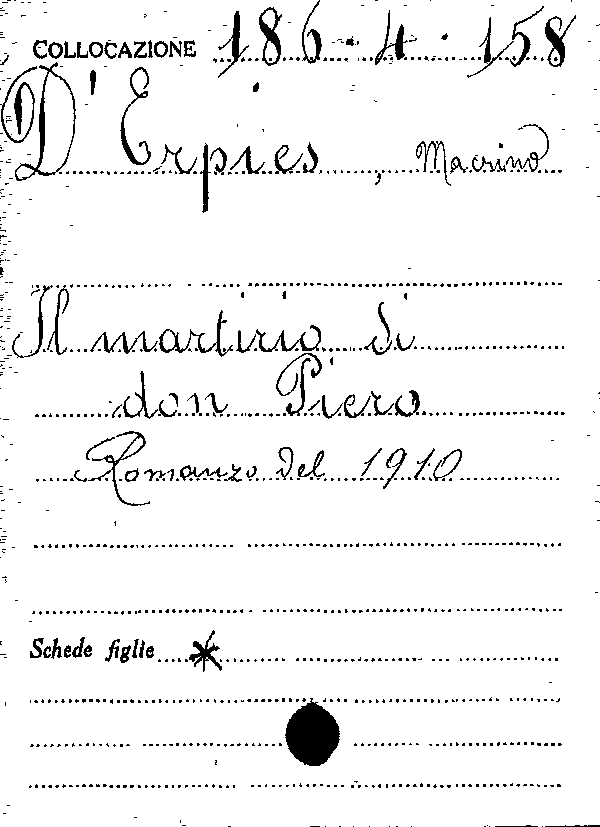 COLLOCAZIONE 186-4-158
D'Erpies, Macrino
Il martirio di
don Piero
Romanzo del 1910
Schede figlie *